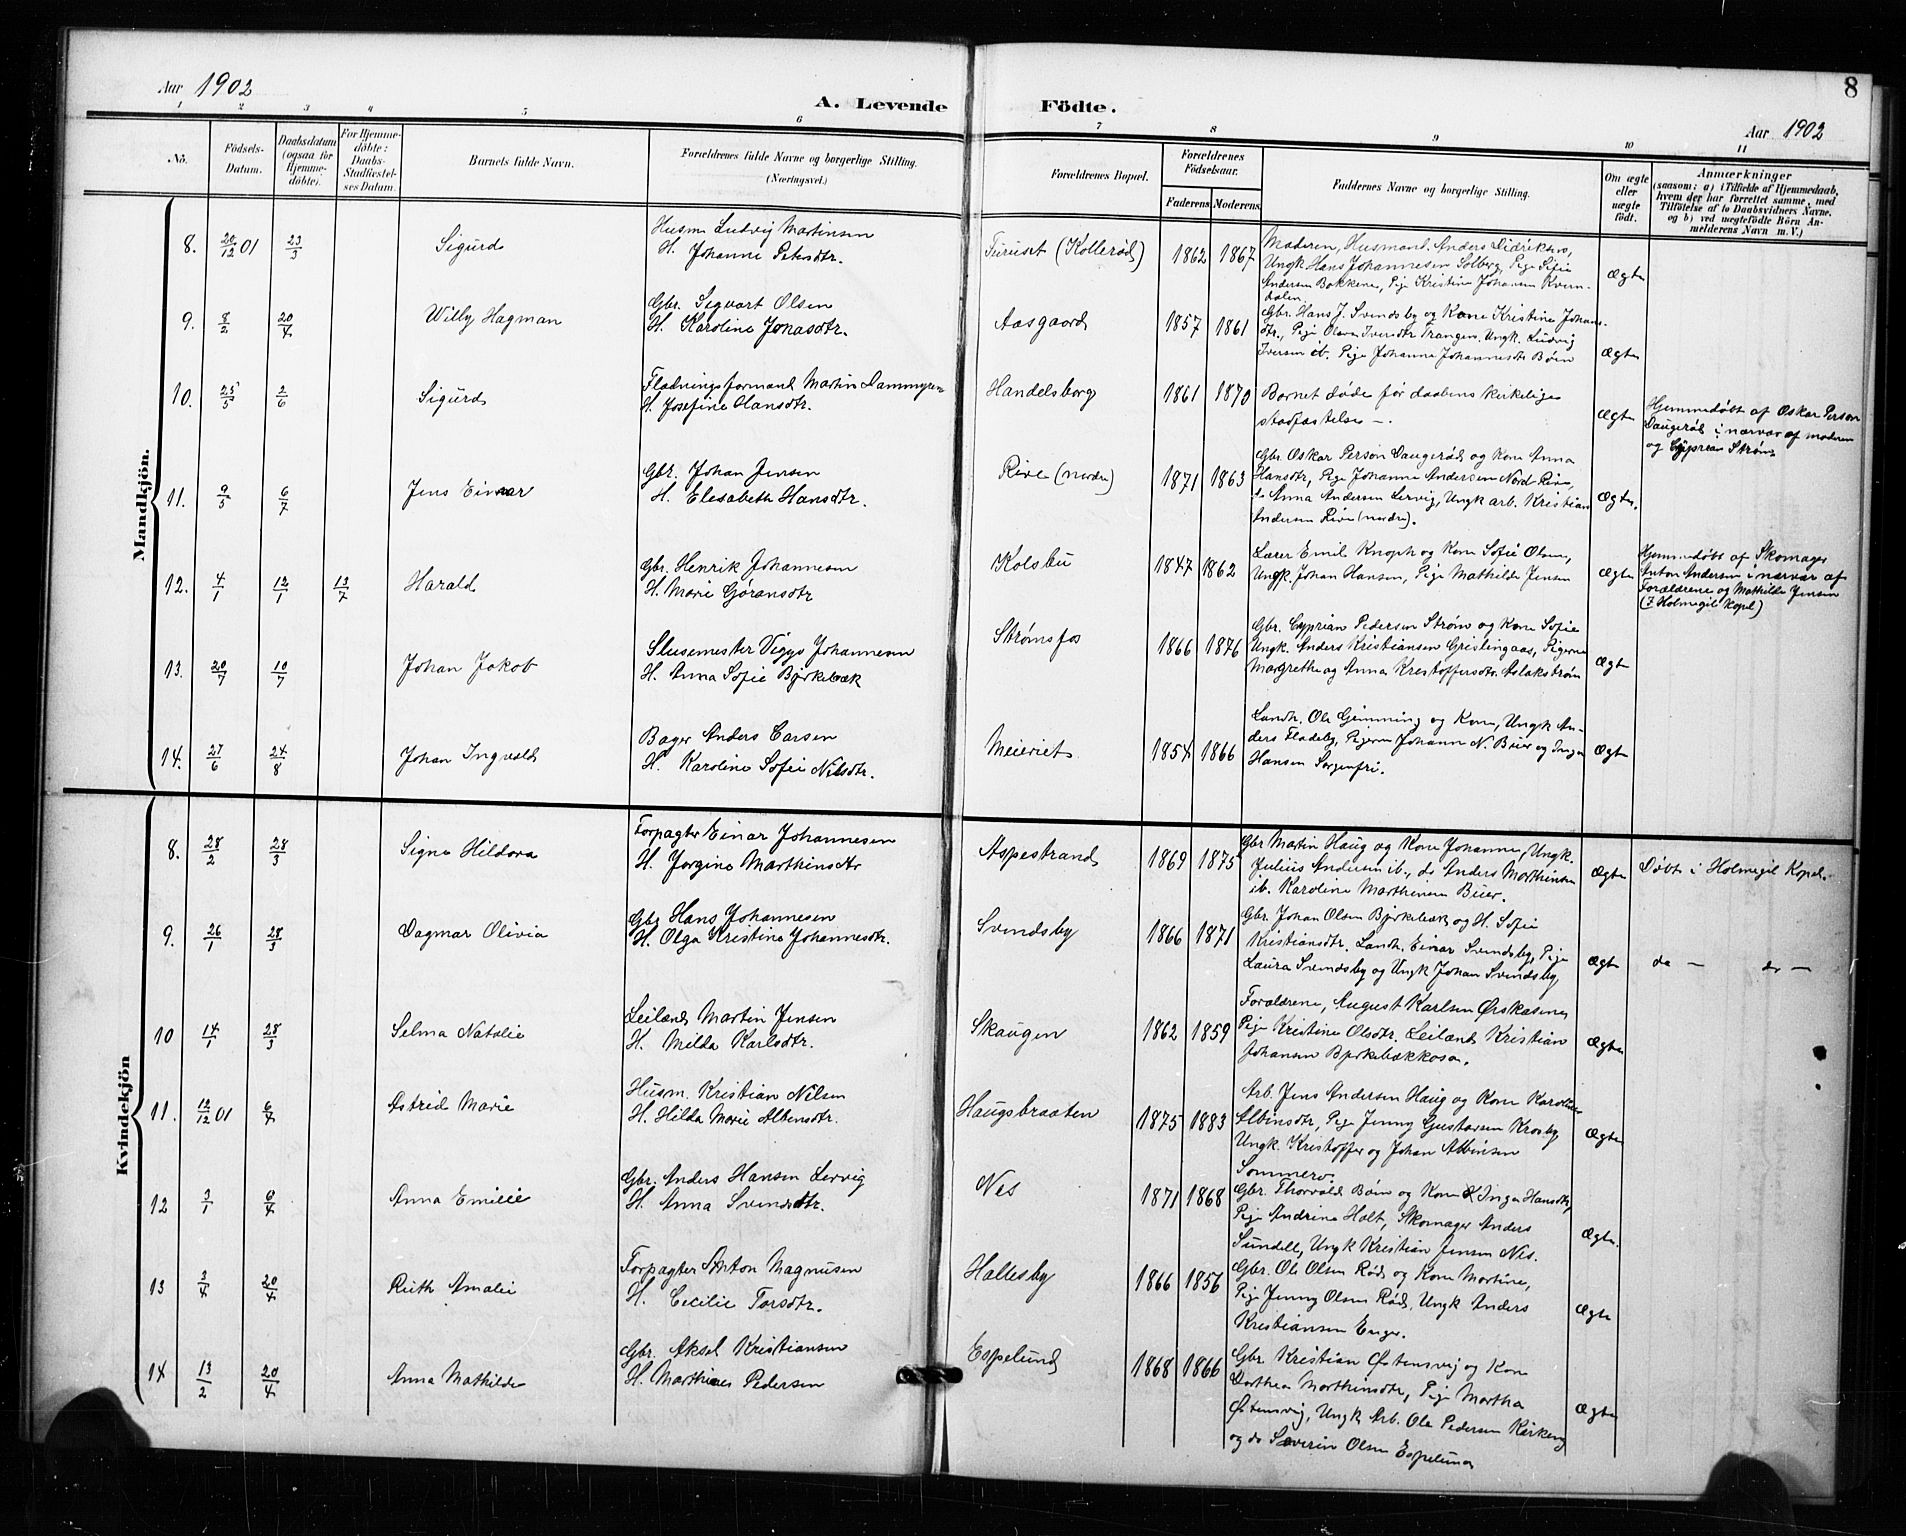 Aar 1902
A. Levende Födte.
Aar 1902
8
1 2 3 4 5 6 7 8 9 10 11
No.
Födsels-Datum.
Daabsdatum (ogsaa for Hjemme-döbte).
For Hjemme-döbte: Daabs-Stadfæstel-ses Datum.
Barnets fulde Navn.
Forældrenes fulde Navne og borgerlige Stilling.
(Næringsvei.)
Forældrenes Bopæl.
Forældrenes Födselsaar.
Faderens Moderens
Faddernes Navne og borgerlige Stilling.
Om ægte eller uægte födt.
Anmærkninger
(saasom: a) i Tilfælde af Hjemmedaab,
hvem der har forrettet samme, med
Tilföielse af to Daabsvidners Navne,
og b) ved uægtefödte Börn An-
melderens Navn m. V.)
Mandkjön.
8. 20/12 01 23/3 Sigurd
Husm Ludvig Martinsen
H. Johanne Petersdtr.
Furuset (Kollerød) 1862 1867
Moderen, Husmand Anders Didriksen,
Ungk Hans Johannesen Solberg, Pige Sofie
Andersen Bakkene, Pige Kristine Johansen Kvern-
dalen
Ægte
9. 8/2 20/4 Willy Hagman
Gbr. Sigvart Olsen
H. Karoline Jonasdtr.
Aasgaard 1857 1861
Gbr. Hans J. Svendsby og Kone Kristine Johans-
dtr., Pige Olava Iversdtr Trangen. Ungk. Ludvig
Iversen ib. Pige Johanne Johannesdtr Böin
Ægte
10. 25/5 2/6 Sigurd
Flødningsformand Martin Dammyren
H. Josefine Olansdtr.
Handelsborg 1861 1870
Barnet døde før daabens kirkelige
stadfæstelse —.
Ægte
Hjemmedøbt af Oskar Person
Daugerød i nærvær af moderen
og Cyprian Strøm
11. 9/5 6/7 Jens Einar
Gbr. Johan Jensen
H. Elesabeth Hansdtr.
Rive (nordre) 1871 1863
Gbr. Oskar Person Daugerød og Kone Anna
Hansdtr, Pige Johanne Andersen Nord Rive,
do Anna Andersen Lervig, Ungk arb. Kristian
Andersen Rive (nordre).
Ægte.
12. 4/1 12/1 13/7 Harald
Gbr. Henrik Johannesen
H. Marie Gøransdtr
Kolsbu 1847 1862
Lærer Emil Knoph og Kone Sofie Olsen,
Ungk. Johan Hansen, Pige Mathilde Jensen
Ægte
Hjemmedøbt af Skomager
Anton Andersen i nærvær af
Forældrene og Mathilde Jensen
(I Holmegil Kapel)
13. 20/7 10/7 Johan Jakob
Slusemester Viggo Johannesen
H. Anna Sofie Bjerkebæk
Strømsfos 1866 1876
Gbr. Cyprian Pedersen Strøm og Kone Sofie
Ungk. Anders Kristiansen Grislingaas, Pigerne
Margrethe og Anna Kristoffersdtr. Aslakstrøm
Ægte
14. 27/6 24/8 Johan Ingvald
Bager Anders Carsen
H. Karoline Sofie Nilsdtr.
Meieriet 1854 1866
Landh. Ole Gimming og Kone, Ungk An-
ders Fladeby, Pigerne Johanne N. Buer og Inga
Hansen Sorgenfri.
Ægte
Kvindekjön
8. 28/2 28/3 Signe Hildora
Forpagter Einar Johannesen
H. Jorgine Marthinsdtr
Aspestrand 1869 1875
Gbr Martin Haug og Kone Johanne, Ungk.
Julius Andersen ib., do Anders Marthinsen
ib. Karoline Marthinsen Buer.
Ægte
Døbt i Holmegil Kapel.
9. 26/1 28/3 Dagmar Olivia
Gbr Hans Johannesen
H. Olga Kristine Johannesdtr.
Svendsby 1866 1871
Gbr. Johan Olsen Bjerkebæk og H. Sofie
Kristiansdtr. Landh. Einar Svendsby, Pige
Laura Svendsby og Ungk Johan Svendsby
Ægte
do — do —
10 14/1 28/3 Selma Natalie
Leilænd Martin Jensen
H. Milda Karlsdtr.
Skaugen 1862 1859
Forældrene, August Karlsen Ørskasene
Pige Kristine Olsdtr. Leilænd Kristian
Johansen Bjerkebækkosa.
Ægte
11. 12/12 01 6/4 Astrid Marie
Husm. Kristian Nilsen
H. Hilda Marie Albensdtr.
Haugsbraaten 1875 1883
Arb. Jens Andersen Haug og Kone Karoline
Albinsdtr, Pige Jenny Gustavsen Krosby
Ungk. Kristoffer og Johan Albinsen
Sommero.
Ægte
12 3/1 6/4 Anna Emilie
Gbr. Anders Hansen Lervig
H. Anna Svendsdtr.
Nes 1871 1868
Gbr. Thorvald Böin og Kone Inga Hansdtr,
Pige Andrine Holt, Skomager Anders
Sundell, Ungk Kristian Jensen Nes.
Ægte.
13 3/4 20/4 Ruth Amalie
Forpagter Anton Magnusen
H. Cecilie Torsdtr.
Hallesby 1866 1856
Gbr. Ole Olsen Rød og Kone Martine,
Pige Jenny Olsen Rød, Ungk Anders
Kristiansen Enger.
Ægte
14 13/2 20/4 Anna Mathilde
Gbr. Aksel Kristiansen
H. Marthines Pedersen
Espelund 1868 1866
Gbr. Kristian Østensvig og Kone
Dorthea Marthinsdtr, Pige Martha
Østensvig, Ungk Arb. Ole Pedersen Kirkeng
og do Severin Olsen Espelund
Ægte